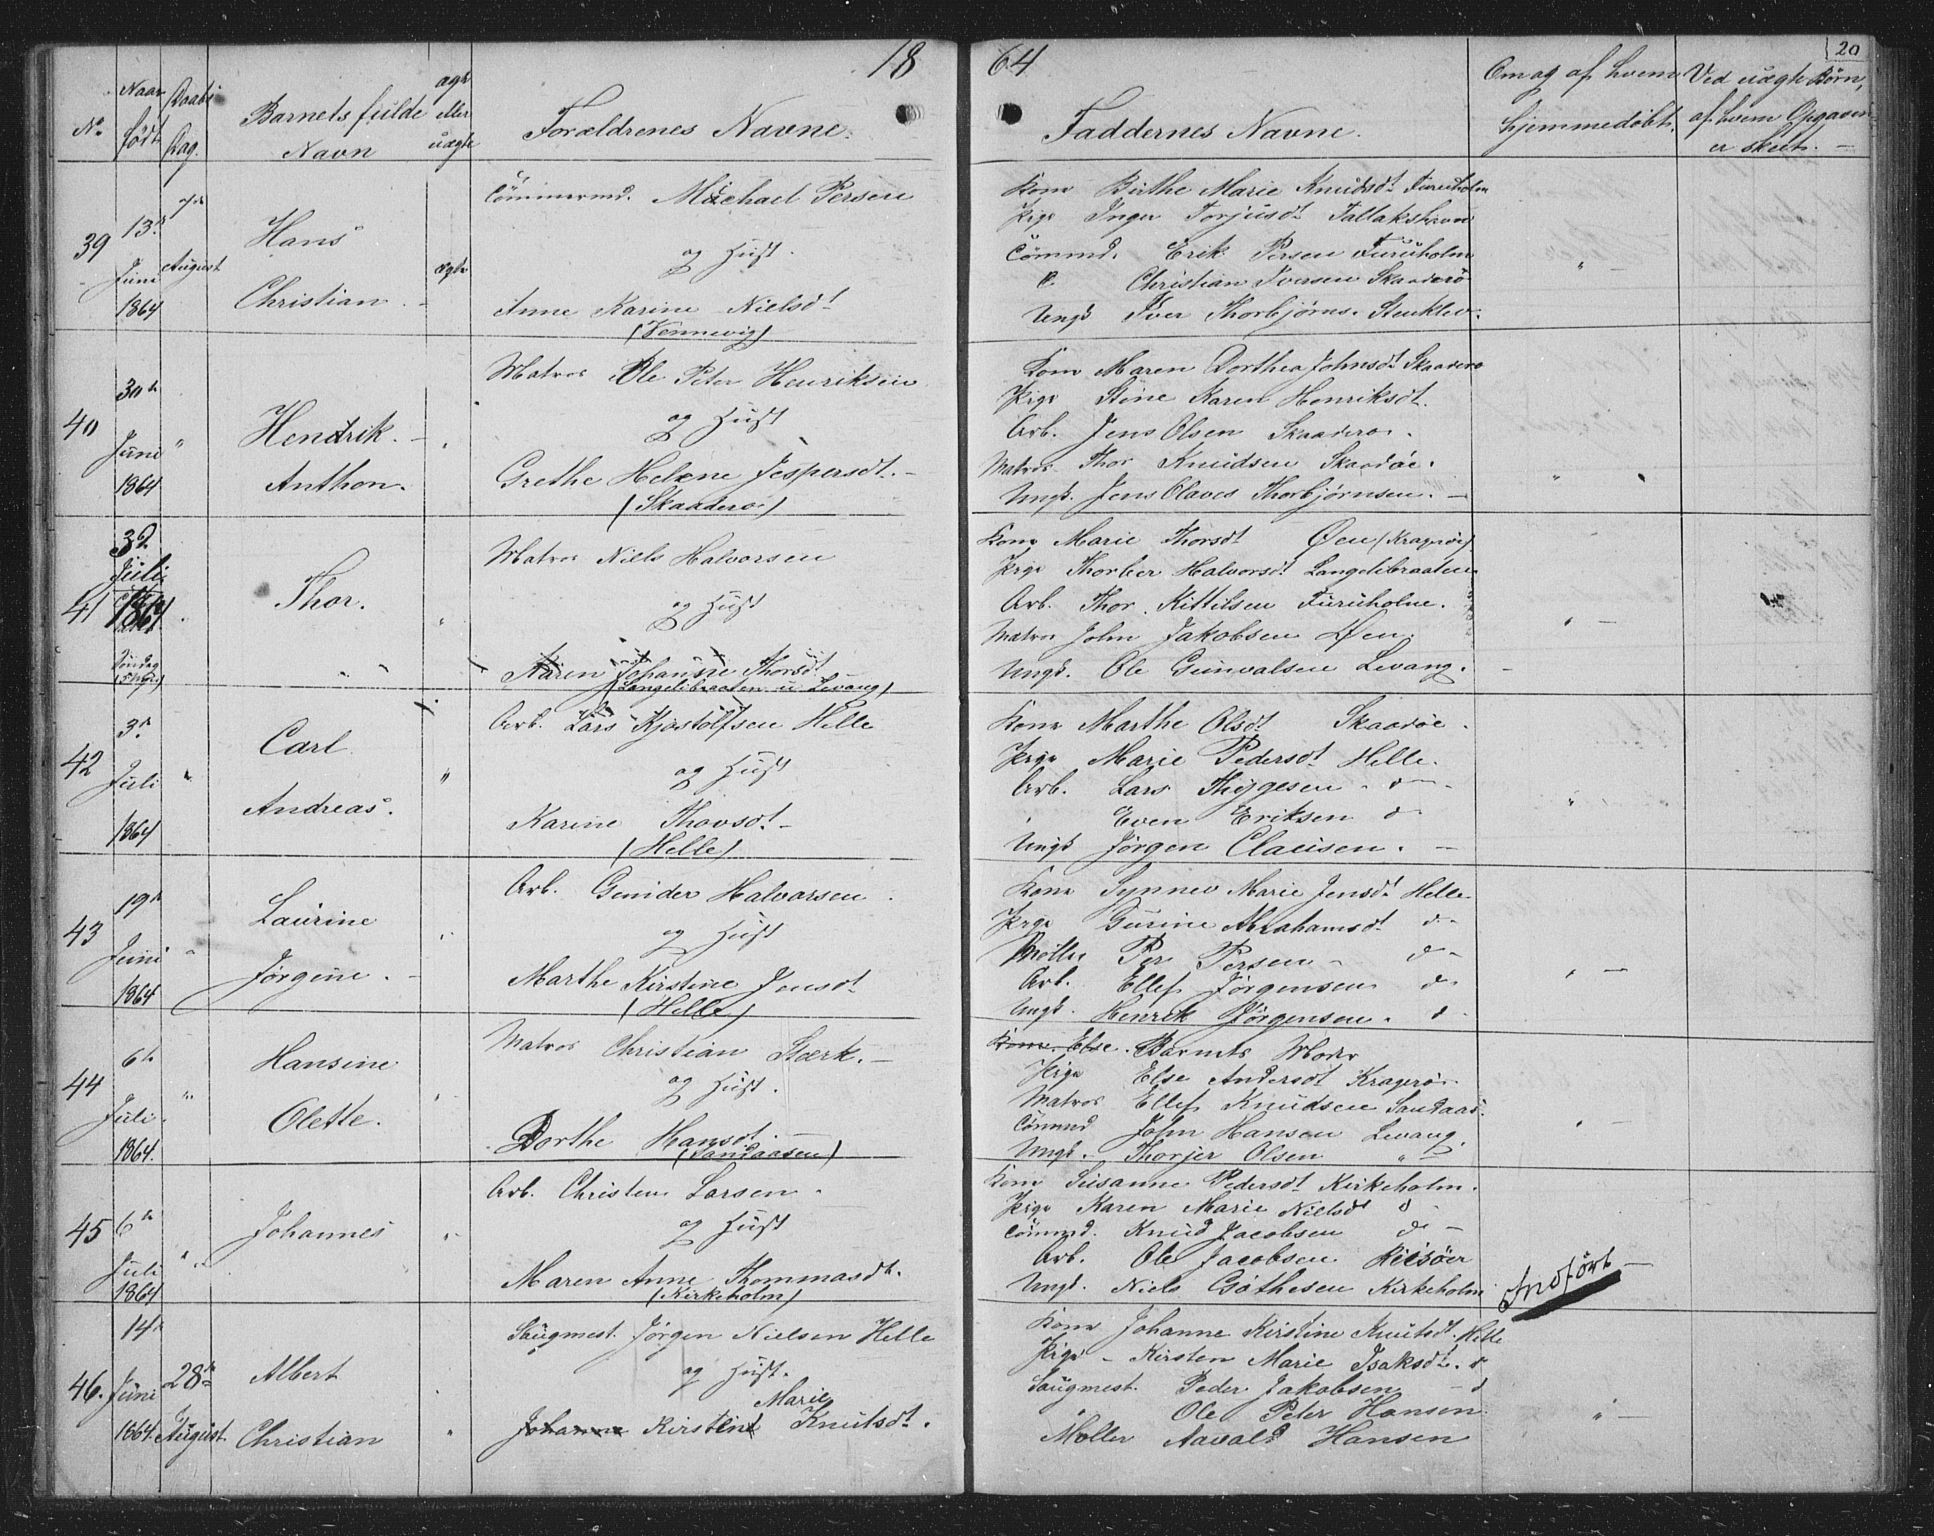 1864
20
No.
Naar født
Daabs Dag.
Barnets fulde Navn
ægte eller uægte
Forældrenes Navne.
Faddernes Navne.
Om og af hvem hjemmedøbt.
Ved uægte Børn, af hvem Opgaven er skeet. –
39
13de Juni 1864
7de August
Hans Christian
ægte
Tömmermd. Michael Persen
og Hust.
Anne Karine Nielsdt
(Kennevig)
Kone Birthe Marie Knudsdt Furuholm
Pige Inger Torjusdt Tallakshavn
Tömmd. Erik Persen Furuholm
Christian Iversen Skaaderö
Ungk Iver Thorbjørns. Stenklev.
40
30te Juni 1864
"
Hendrik Anthon.
Matros Ole Peter Henriksen
og Hust
Grethe Helene Jespersdt. –
(Skaaderø)
Kone Maren Dorthea Johnsdt Skaaderø
Pige Stine Karen Henriksdt.
Arb. Jens Olsen Skaaderø.
Matros Thor Knudsen Skaadøe.
Ungk. Jens Olaves Thorbjørnsen. –
41
3d Juli 1864
Thor.
Matros Niels Halvorsen
og Hust
Karen Johanne Thorsdt
(Langelibraaten u Levang)
Kone Marie Thorsdt Øen (Kragerøe)
Pige Thorber Halvorsdt Langelibraaten
Arb. Thor Kittilsen Furuholme.
Matros John Jakobsen Øen.
Ungk. Ole Gunvalsen Levang.
42
3de Juli 1864
Carl Andreas.
"
Arb. Lars Kjøstolfsen Helle
og Hust
Karine Thovsdt –
(Helle)
Kone Marthe Olsdt Skaadøe.
Pige Marie Pedersdt Helle.
Arb. Lars Thygesen d –
Even Eriksen d
Ungk Jørgen Clausen. –
43
19de Juni 1864
Laurine Jørgine.
Arb. Gunder Halvorsen
og Hust
Marthe Kirstine Jensdt
(Helle)
Kone Synnev Marie Jensdt Helle
Pige Gurine Abrahamsdt d –
Møller Per Persen d –
Arb. Ellef Jörgensen d –
Ungk. Henrik Jörgensen. d
44
6te Juli 1864.
Hansine Olette.
Matros Christian Stærk. –
og Hust.
Dorthe Hansdt. –
(Sandaasen)
Kone Else. Barnets Moder
Pige Else Andersdt Kragerø.
Matros Ellef Knudsen Sandaas.
Tömmd John Hansen Levang.
Ungk. Thorjer Olsen "
45
6te Juli 1864
Johannes
Arb. Christen Larsen.
og Hust
Maren Anne Thommasdt.
(Kirkeholm)
Kone Susanne Pedersdt Kirkeholm.
Pige Karen Marie Nielsdt d
Tömmd. Knud Jacobsen d –
Arb. Ole Jacobsen Riisöer
Ungk. Niels Göthesen Kirkeholm
Andført –
46.
14de Juni 1864.
28de August
Albert Christian
Saugmest. Jörgen Nielsen Helle
og Hust.
Marie
Johanne Kirstine Knutsdt.
Kone Johanne Kirstine Knutsdt. Helle
Pige – Kirsten Marie Isaksdt. d
Saugmest. Peder Jakobsen – d
Ole Peter Hansen
Møller Aavald Hansen